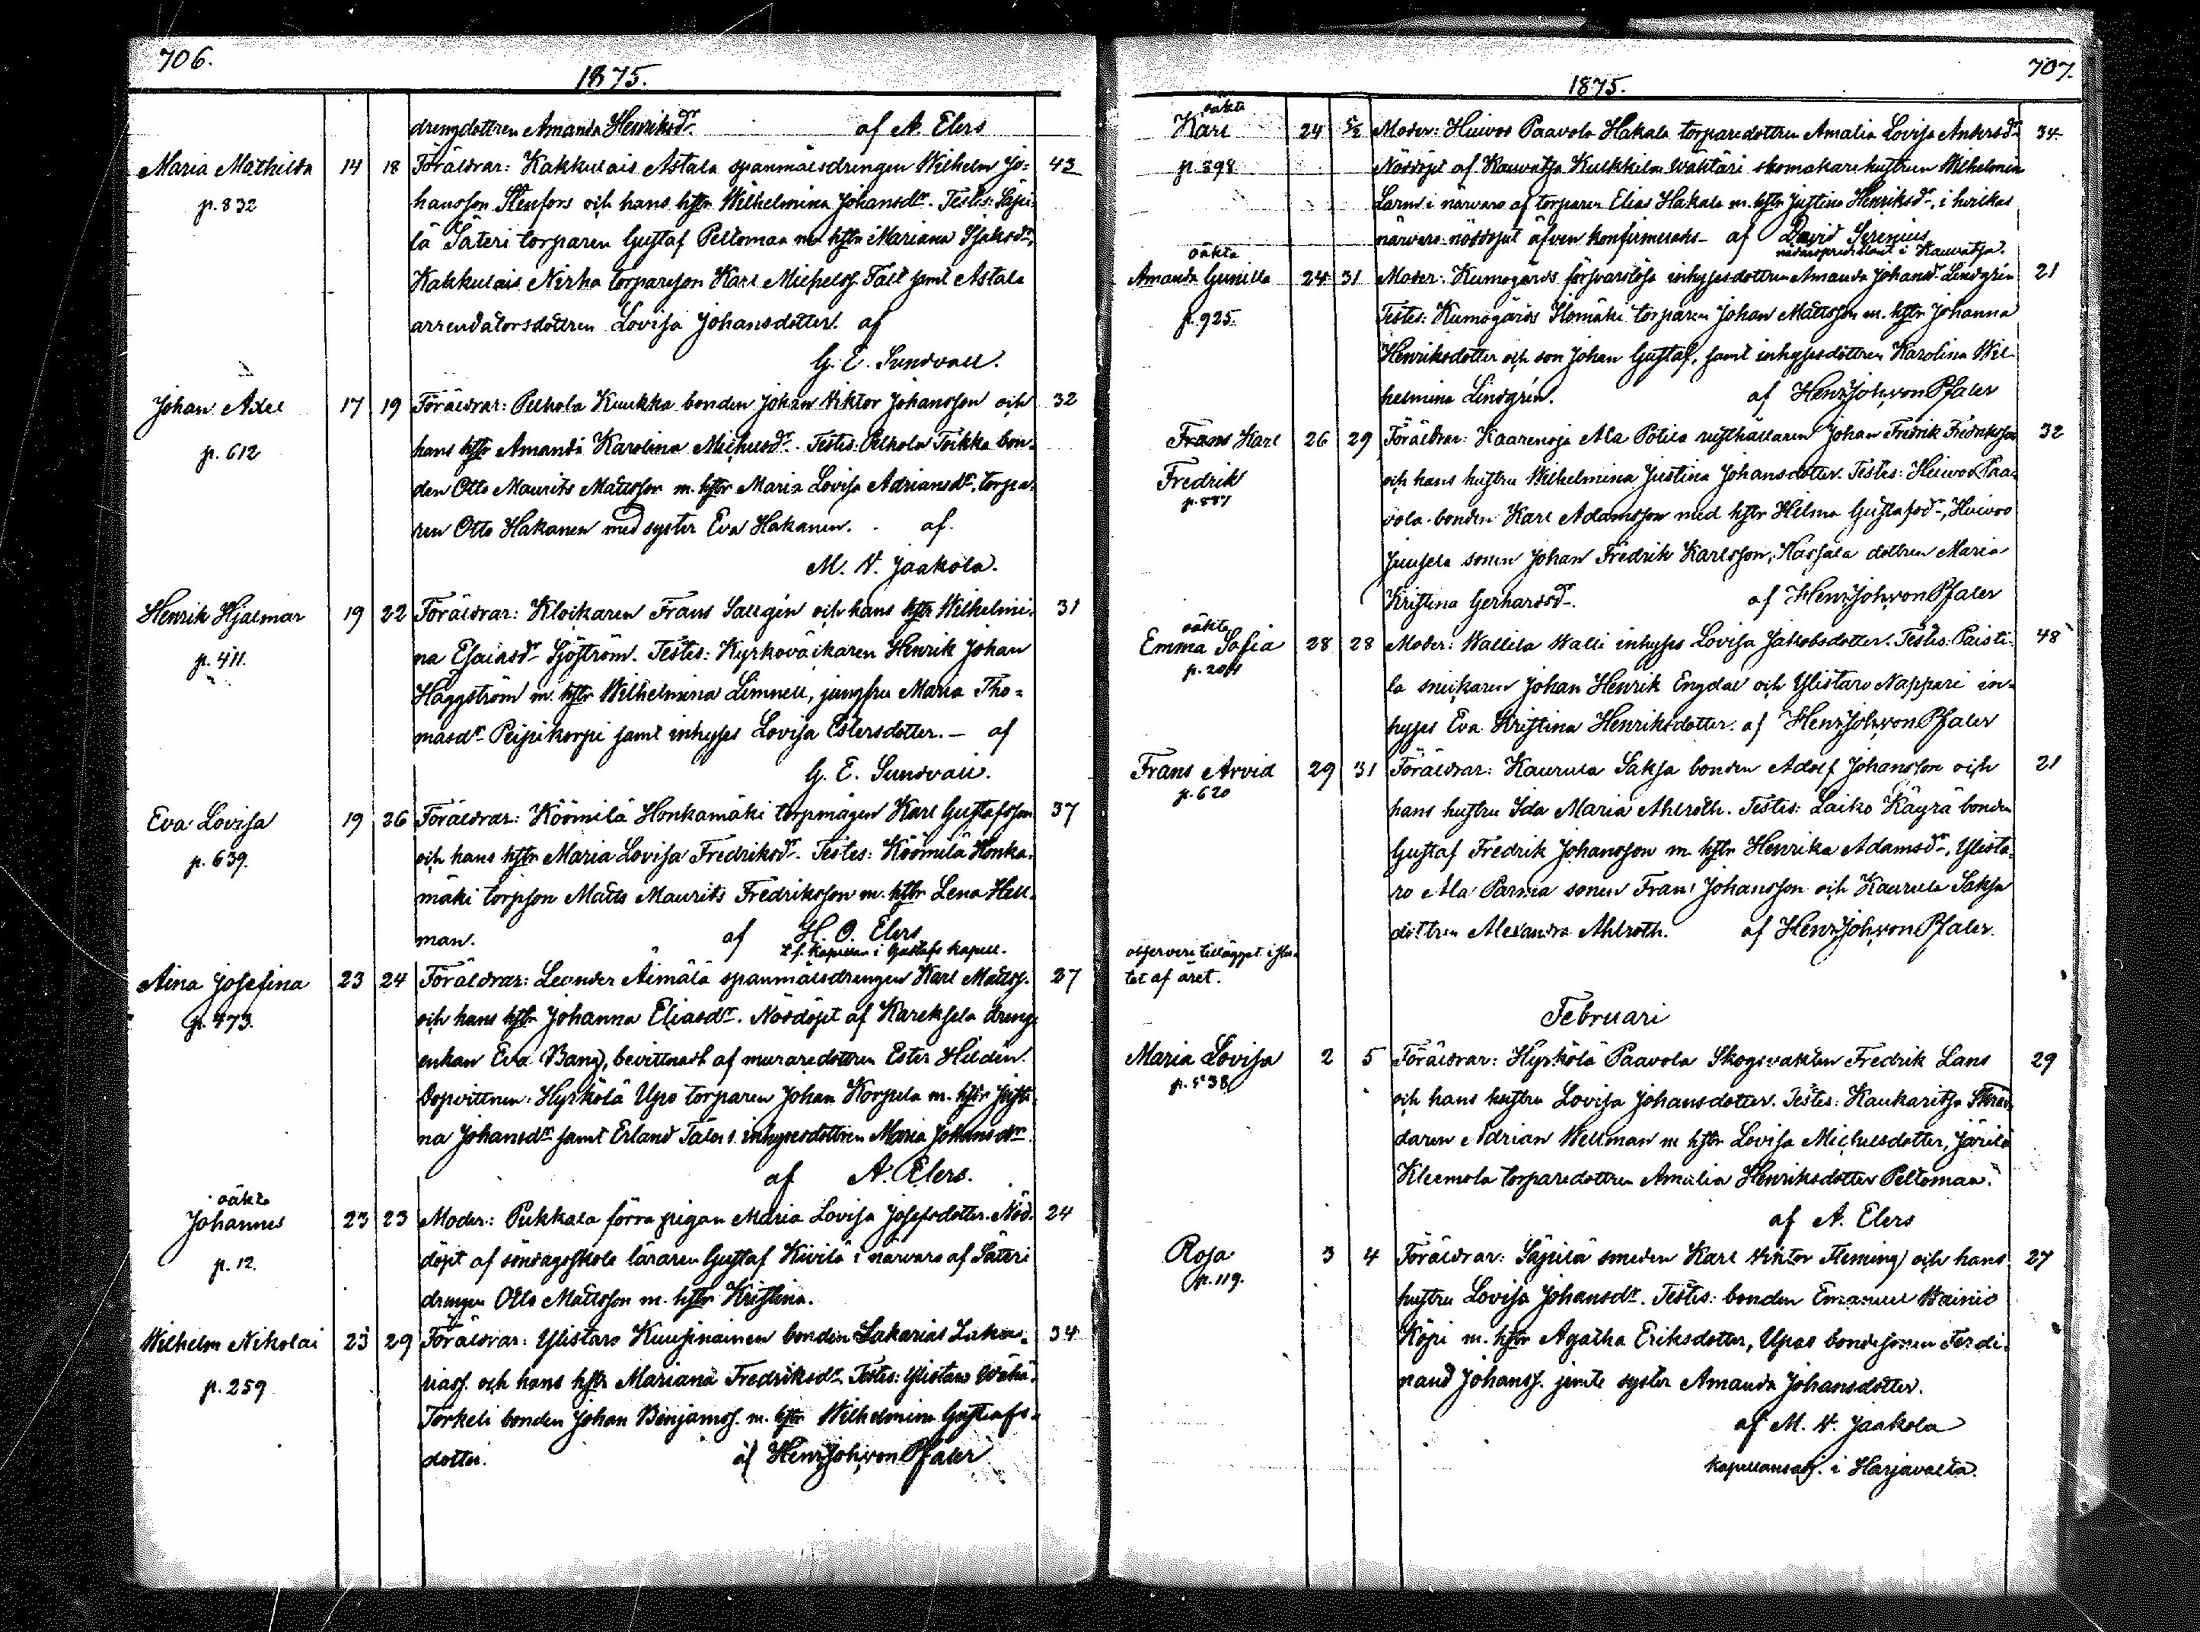 706.
1875.
drengdottren Amanda Henriksdr. af A. Elers
Maria Mathilda 14 18 Föräldrar: Kakkulais Astala spanmålsdrengen Wilhelm Jo= 43
p. 832
hansson Stenfors och hans hstr Wilhelmina Johansdr. Testes: Säpi-
lä Säteri torparen Gustaf Peltomaa m. hstr Mariana Isaksdr,
Kakkulais Nirha torpareson Karl Michelss. Fält samt Astala
arrendatorsdottren Lovisa Johansdotter. af
G. E. Sundvall.
Johan Axel 17 19 Föräldrar: Pelhola Kuukka bonden Johan Viktor Johansson och 32
p. 612
hans hstr Amanda Karolina Michelsdr. Testes: Pelhola Toikka bon-
den Otto Maurits Mattsson m. hstr Maria Lovisa Adriansdr, torpa-
ren Otto Hakanen med syster Eva Hakanen. af
M. V. Jaakola.
Henrik Hjalmar 19 22 Föräldrar: Klockaren Frans Sallgén och hans hstr Wilhelmi- 31
p. 411.
na Esaiasdr Sjöström. Testes: Kyrkoväktaren Henrik Johan
Häggström m. hstr Wilhelmina Limnell, jungfru Maria Tho=
masdr Peipikorpi samt inhyses Lovisa Estersdotter. — af
G. E. Sundvall.
Eva Lovisa 19 26 Föräldrar: Köömilä Honkamäki torpmågen Karl Gustafsson 37
p. 639.
och hans hstr Maria Lovisa Fredriksdr. Testes: Köömilä Honka-
mäki torpson Matts Maurits Fredriksson m. hstr Lena Hell-
man. af H. O. Elers
t.f. kapellan i Gustafs kapell.
Aina Josefina 23 24 Föräldrar: Leander Äimälä spanmålsdrengen Karl Mattss. 27
p. 473.
och hans hstr Johanna Eliasdr. Nöddöpt af Kareksela dreng-
enkan Eva Bang, bevittnadt af muraredottren Ester Hildén.
Dopvittnen: Hyrkölä Upo torparen Johan Korpela m. hstr Justi-
na Johansdr samt Erland Talos inhysesdottren Maria Johansdr
af A. Elers.
oäkta
Johannes 23 23 Moder: Pukkala förra pigan Maria Lovisa Josefsdotter. Nöd- 24
p. 12.
döpt af söndagsskole läraren Gustaf Kivilä i närvaro af Säteri
drengen Otto Mattsson m. hstr Kristina.
Wilhelm Nikolai 23 29 Föräldrar: Ylistaro Kuusinainen bonden Sakarias Saka- 34
p. 259
riass. och hans hstr Mariana Fredriksdr. Testes: Ylistaro Wähä-
Torkeli bonden Johan Benjamss. m. hstr Wilhelmina Gustafs-
dotter. af Henr. Joh. von Pfaler
707.
1875.
oäkta
Karl 24 5/2 Moder: Huivoo Paavola Hakala torparedottren Amalia Lovisa Andersdr 34
p. 898
Nöddöpt af Kauvatsa Kulkkila Wäktäri skomakarehustrun Wilhelmina
Larns i närvaro af torparen Elias Hakala m. hstr Justina Henriksdr, i hvilkas
närvaro nöddopet äfven konfirmerades af David Serenius
nådårspredikant i Kauvatsa.
oäkta
Amanda Gunilla 24 31 Moder: Kumogårds försvarslösa inhysesdottren Amanda Johansdr Lindgrén 21
p. 925.
Testes: Kumogårds Isomäki torparen Johan Mattsson m. hstr Johanna
Henriksdotter och son Johan Gustaf, samt inhysesdottren Karolina Wil-
helmina Lindgrén. af Henr. Joh. von Pfaler
Frans Karl 26 29 Föräldrar: Kaarenoja Ala Potila rusthållaren Johan Fredrik Fredriksson 32
Fredrik
p. 887
och hans hustru Wilhelmina Justina Johansdotter. Testes: Huivoo Paa-
vola bonden Karl Adamsson med hstr Hilma Gustafsdr, Huivoo
Juusela sonen Johan Fredrik Karlsson, dottren Maria
Kristina Gerhardsdr. af Henr. Joh. von Pfaler
oäkta
Emma Sofia 28 28 Moder: Wallila Walli inhyses Lovisa Jakobsdotter. Testes: Paisti- 48
p. 204
la snickaren Johan Henrik Engdal och Ylistaro Nappari in-
hyses Eva Kristina Henriksdotter. af Henr. Joh. von Pfaler
Frans Arvid 29 31 Föräldrar: Kaurula Saksa bonden Adolf Johansson och 21
p. 620
hans hustru Ida Maria Ahlroth. Testes: Laiko Käyrä bonden
Gustaf Fredrik Johansson m. hstr Henrika Adamsdr, Ylista-
ro Ala Parma sonen Frans Johansson och Kaurula Saksa
dottren Alexandra Ahlroth. af Henr. Joh. von Pfaler.
observera tillägget i slu-
tet af året.
Februari
Maria Lovisa 2 5 Föräldrar: Hyrkölä Paavola Skogsvakten Fredrik Lans 29
p. 538
och hans hustru Lovisa Johansdotter. Testes: Kaukaritsa Skräd-
daren Adrian Wellman m. hstr Lovisa Michelsdotter, Järilä
Kleemola torparedottren Amalia Henriksdotter Peltomaa.
af A. Elers
Rosa 3 4 Föräldrar: Säpilä smeden Karl Viktor Fleming och hans 27
p. 119.
hustru Lovisa Johansdr. Testes: bonden Emanuel Wainio
Köpi m. hstr Agatha Eriksdotter, Upas bondesonen Ferdi-
nand Johanss. jemte syster Amanda Johansdotter.
af M. V. Jaakola
kapellansadj. i Harjavalta.